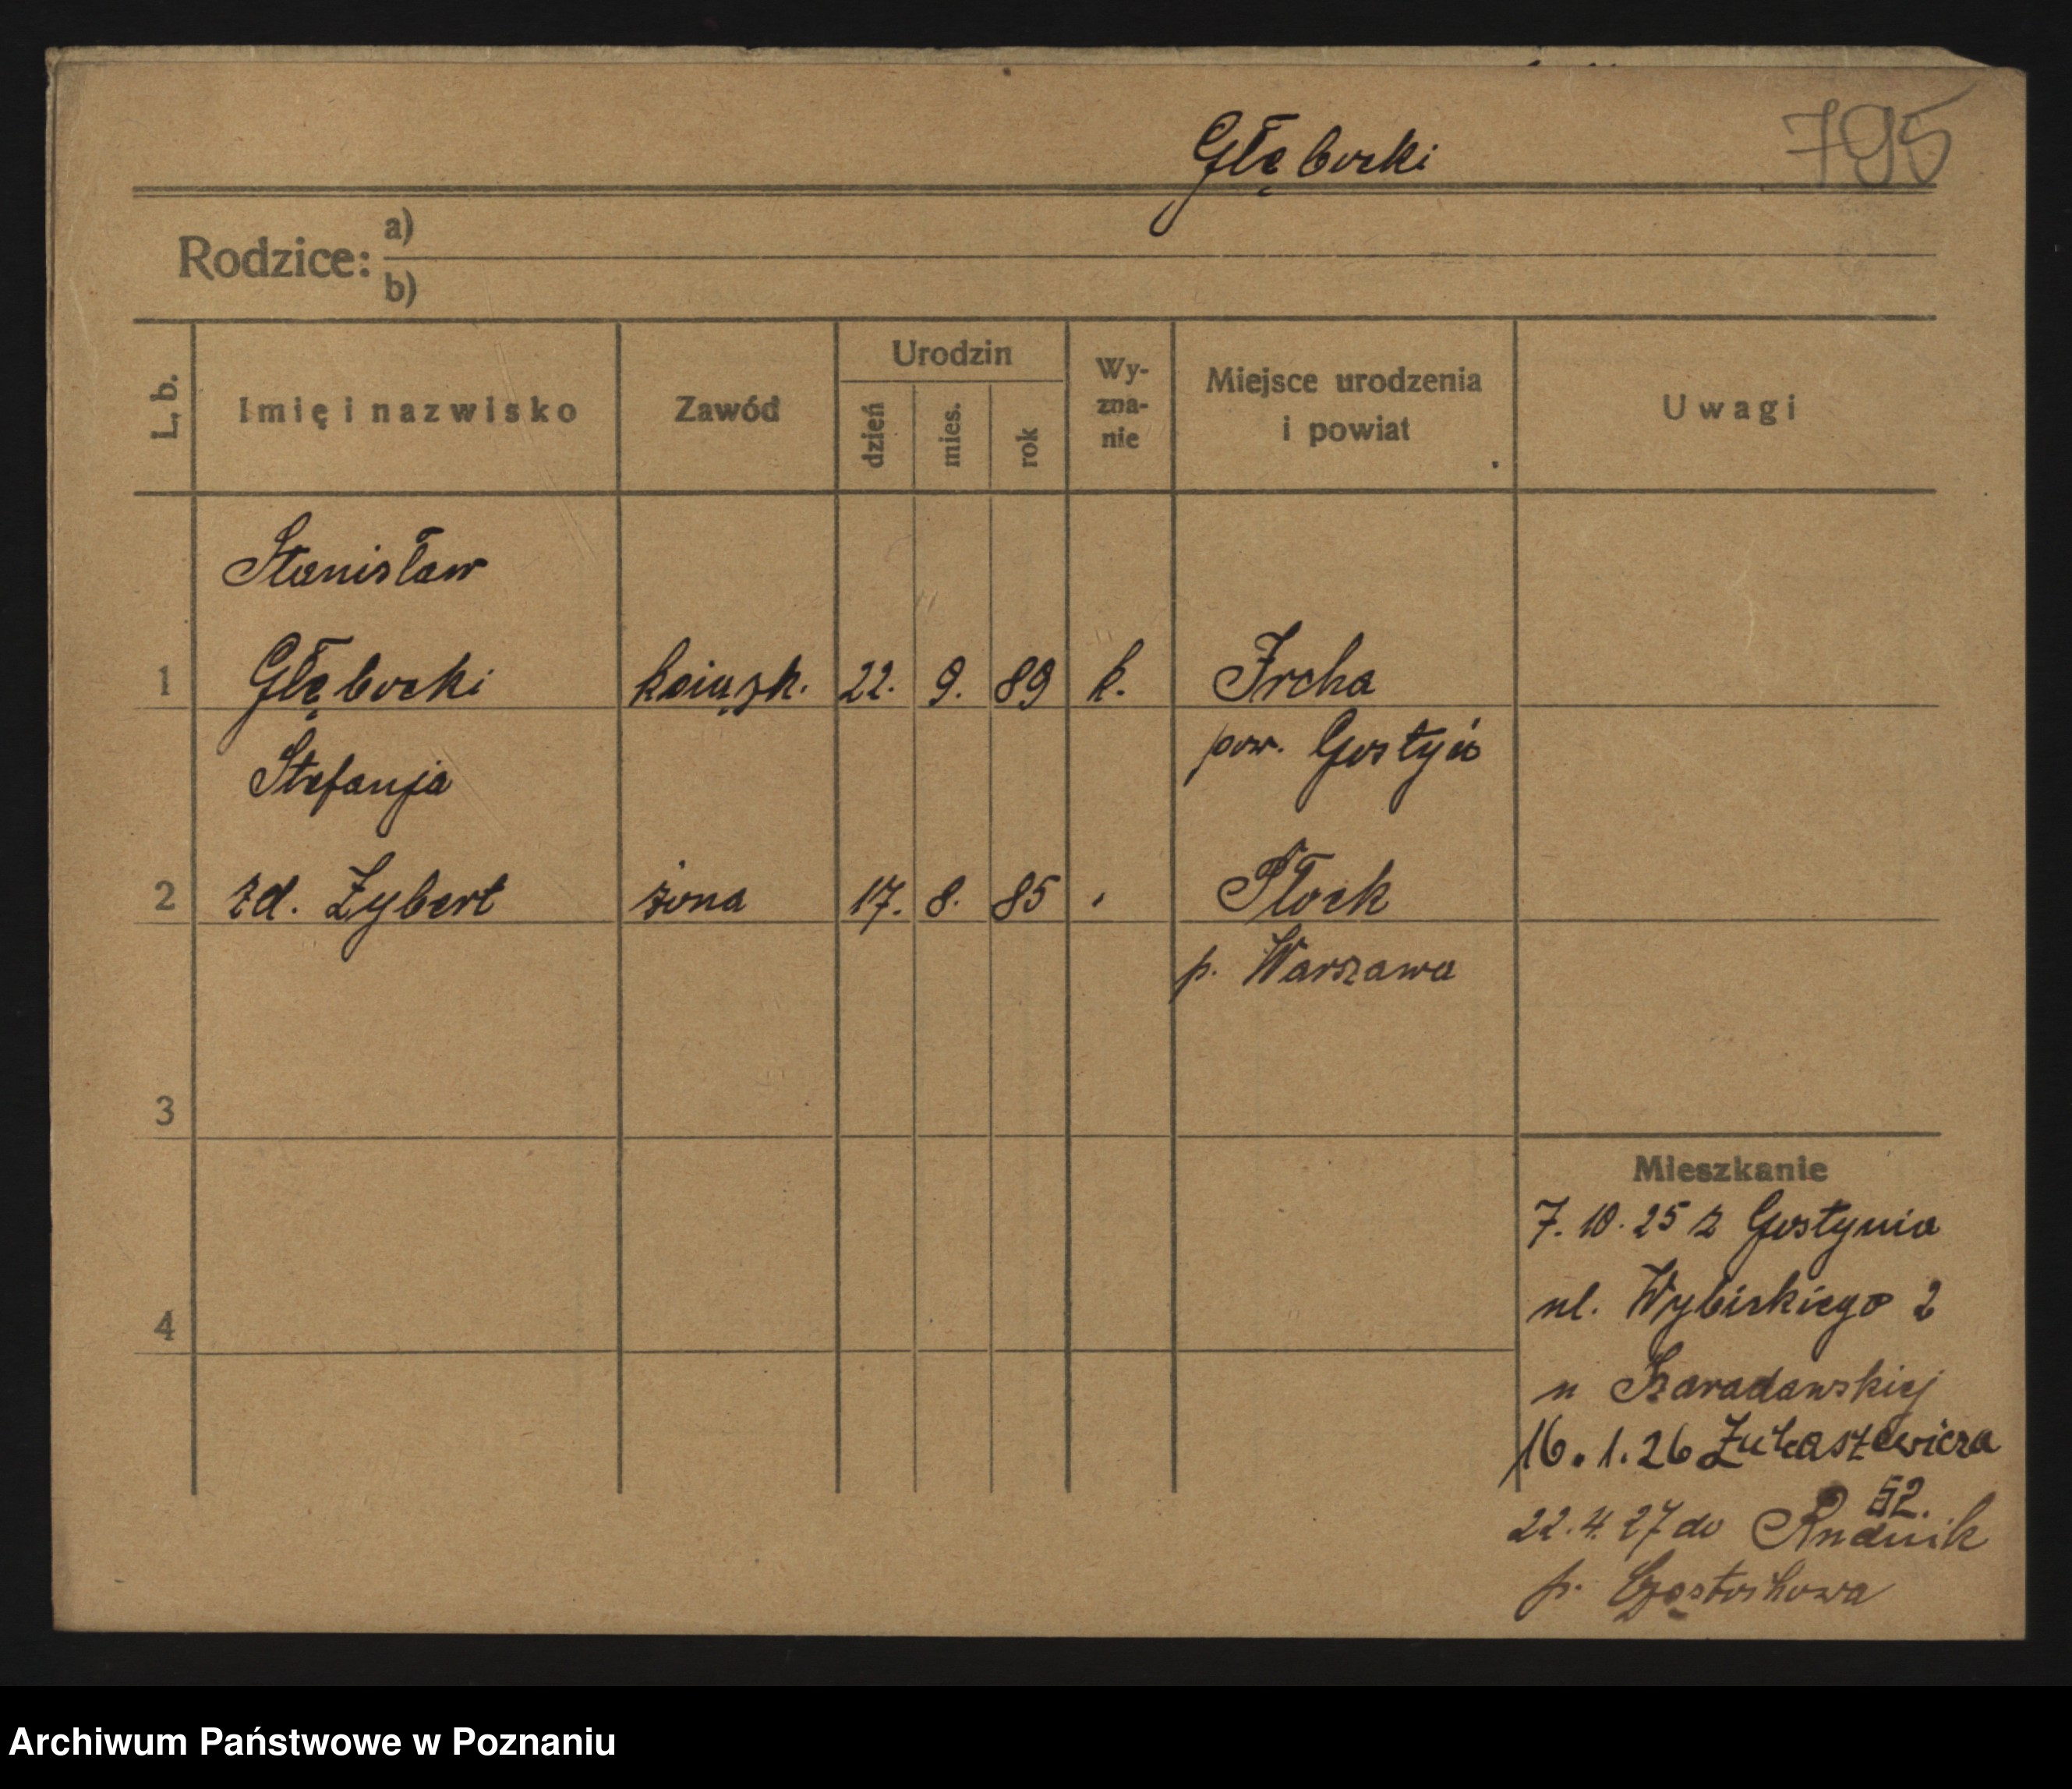 795
Głębocki
Rodzice: a)
b)
L. b.
Imię i nazwisko
Zawód
Urodzin
dzień
mies.
rok
Wy-
zna-
nie
Miejsce urodzenia
i powiat
Uwagi
Stanisław
1 Głębocki 22. 9. 89 k. Ircha
pow. Gostyń
Stefanja
2 zd. Zybert żona 17. 8. 85 Płock
p. Warszawa
3
4
Mieszkanie
7. 10. 25 z Gostynia
ul. Wybickiego 2
u
16. 1. 26 Łukaszewicza
52.
22. 4. 27 do Rudnik
p. Częstochowa
Archiwum Państwowe w Poznaniu